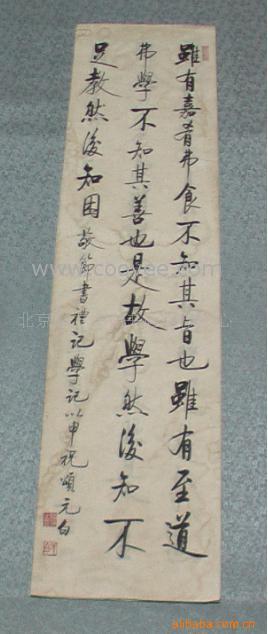 雖有嘉肴弗食不知其旨也雖有至道
弗學不知其善也是故學然後知不
足教然後知困故節書禮記學記以申祝頌元白
www.cooyee.com
北京
阿里巴巴 alibaba.com.cn